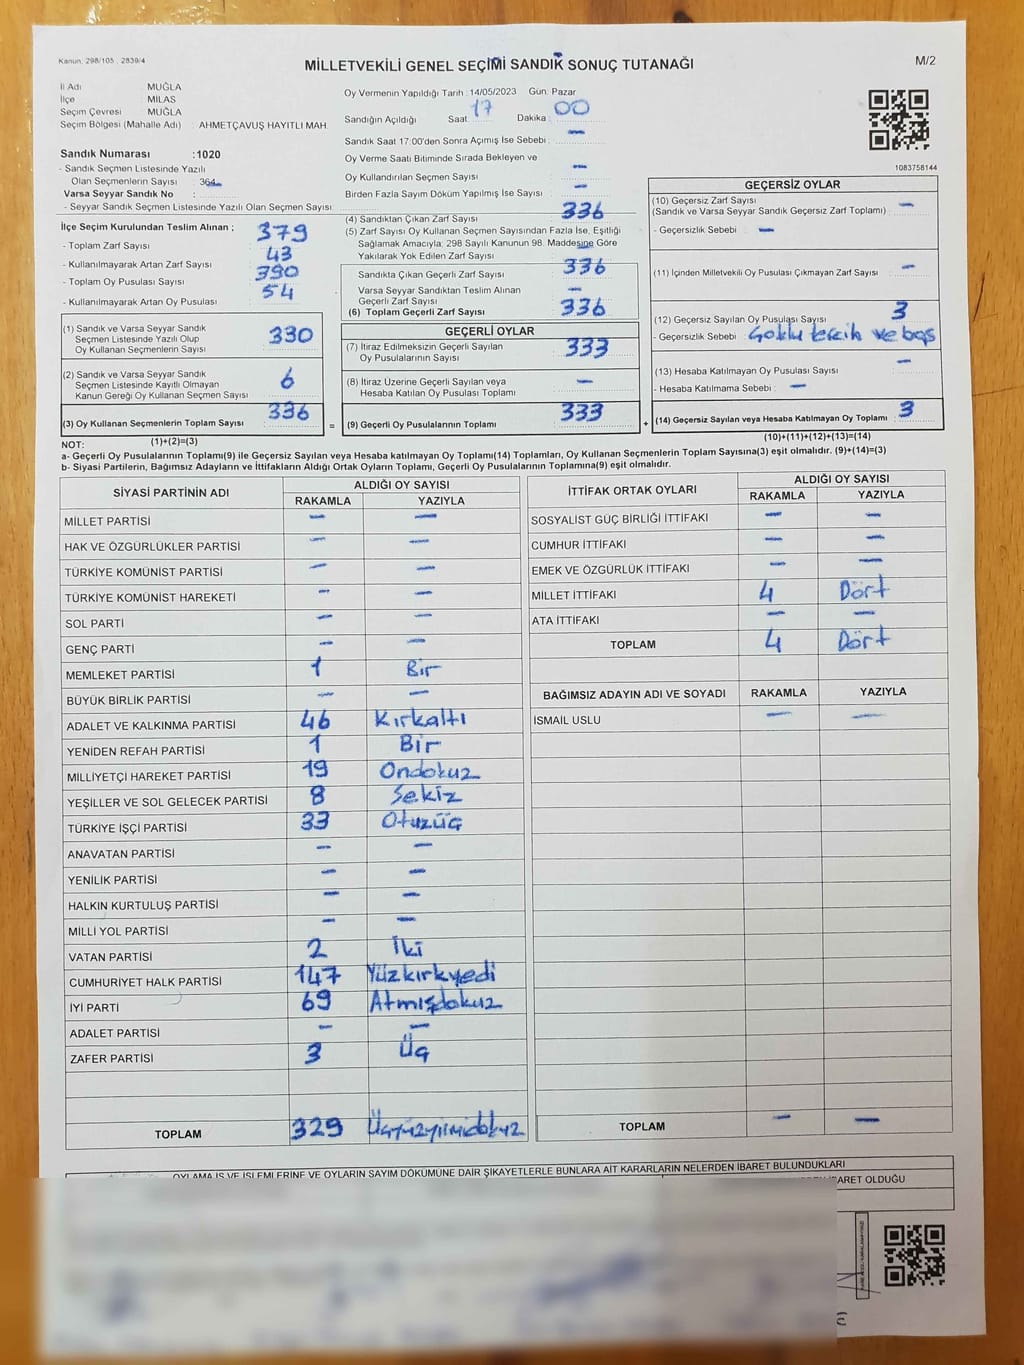 Kanun: 298/105 , 2839/4
MİLLETVEKİLİ GENEL SEÇİMİ SANDIK SONUÇ TUTANAĞI
M/2
İl Adı MUĞLA
İlçe MİLAS
Seçim Çevresi MUĞLA
Seçim Bölgesi (Mahalle Adı) : AHMETÇAVUŞ HAYITLI MAH.
Sandık Numarası :1020
- Sandık Seçmen Listesinde Yazılı
Olan Seçmenlerin Sayısı : 364
Varsa Seyyar Sandık No :
- Seyyar Sandık Seçmen Listesinde Yazılı Olan Seçmen Sayısı:
İlçe Seçim Kurulundan Teslim Alınan ;
- Toplam Zarf Sayısı 379
- Kullanılmayarak Artan Zarf Sayısı 43
- Toplam Oy Pusulası Sayısı 390
- Kullanılmayarak Artan Oy Pusulası 54
(1) Sandık ve Varsa Seyyar Sandık
Seçmen Listesinde Yazılı Olup
Oy Kullanan Seçmenlerin Sayısı 330
(2) Sandık ve Varsa Seyyar Sandık
Seçmen Listesinde Kayıtlı Olmayan
Kanun Gereği Oy Kullanan Seçmen Sayısı 6
(3) Oy Kullanan Seçmenlerin Toplam Sayısı 336
Oy Vermenin Yapıldığı Tarih :14/05/2023 Gün: Pazar
Sandığın Açıldığı Saat: 17 Dakika: 00
Sandık Saat 17:00'den Sonra Açımış İse Sebebi : -
Oy Verme Saati Bitiminde Sırada Bekleyen ve
Oy Kullandırılan Seçmen Sayısı : -
Birden Fazla Sayım Döküm Yapılmış İse Sayısı : -
(4) Sandıktan Çıkan Zarf Sayısı 336
(5) Zarf Sayısı Oy Kullanan Seçmen Sayısından Fazla İse, Eşitliği
Sağlamak Amacıyla; 298 Sayılı Kanunun 98. Maddesine Göre
Yakılarak Yok Edilen Zarf Sayısı -
Sandıkta Çıkan Geçerli Zarf Sayısı 336
Varsa Seyyar Sandıktan Teslim Alınan
Geçerli Zarf Sayısı -
(6) Toplam Geçerli Zarf Sayısı 336
GEÇERLİ OYLAR
(7) İtiraz Edilmeksizin Geçerli Sayılan
Oy Pusulalarının Sayısı 333
(8) İtiraz Üzerine Geçerli Sayılan veya
Hesaba Katılan Oy Pusulası Toplamı -
= (9) Geçerli Oy Pusulalarının Toplamı 333 +
1083758144
GEÇERSİZ OYLAR
(10) Geçersiz Zarf Sayısı
(Sandık ve Varsa Seyyar Sandık Geçersiz Zarf Toplamı) : -
- Geçersizlik Sebebi : -
(11) İçinden Milletvekili Oy Pusulası Çıkmayan Zarf Sayısı : -
(12) Geçersiz Sayılan Oy Pusulası Sayısı 3
- Geçersizlik Sebebi : Çoklu tercih ve boş
(13) Hesaba Katılmayan Oy Pusulası Sayısı -
- Hesaba Katılmama Sebebi : -
(14) Geçersiz Sayılan veya Hesaba Katılmayan Oy Toplamı : 3
NOT: (1)+(2)=(3)
(10)+(11)+(12)+(13)=(14)
a- Geçerli Oy Pusulalarının Toplamı(9) ile Geçersiz Sayılan veya Hesaba katılmayan Oy Toplamı(14) Toplamları, Oy Kullanan Seçmenlerin Toplam Sayısına(3) eşit olmalıdır. (9)+(14)=(3)
b- Siyasi Partilerin, Bağımsız Adayların ve İttifakların Aldığı Ortak Oyların Toplamı, Geçerli Oy Pusulalarının Toplamına(9) eşit olmalıdır.
SİYASİ PARTİNİN ADI ALDIĞI OY SAYISI
RAKAMLA YAZIYLA
MİLLET PARTİSİ - -
HAK VE ÖZGÜRLÜKLER PARTİSİ - -
TÜRKİYE KOMÜNİST PARTİSİ - -
TÜRKİYE KOMÜNİST HAREKETİ - -
SOL PARTİ - -
GENÇ PARTİ - -
MEMLEKET PARTİSİ 1 Bir
BÜYÜK BİRLİK PARTİSİ - -
ADALET VE KALKINMA PARTİSİ 46 Kırkaltı
YENİDEN REFAH PARTİSİ 1 Bir
MİLLİYETÇİ HAREKET PARTİSİ 19 Ondokuz
YEŞİLLER VE SOL GELECEK PARTİSİ 8 Sekiz
TÜRKİYE İŞÇİ PARTİSİ 33 Otuzüç
ANAVATAN PARTİSİ - -
YENİLİK PARTİSİ - -
HALKIN KURTULUŞ PARTİSİ - -
MİLLİ YOL PARTİSİ - -
VATAN PARTİSİ 2 İki
CUMHURİYET HALK PARTİSİ 147 Yüzkırkyedi
İYİ PARTİ 69 Atmışdokuz
ADALET PARTİSİ - -
ZAFER PARTİSİ 3 Üç
TOPLAM 329 Üçyüzyirmidokuz
İTTİFAK ORTAK OYLARI ALDIĞI OY SAYISI
RAKAMLA YAZIYLA
SOSYALİST GÜÇ BİRLİĞİ İTTİFAKI - -
CUMHUR İTTİFAKI - -
EMEK VE ÖZGÜRLÜK İTTİFAKI - -
MİLLET İTTİFAKI 4 Dört
ATA İTTİFAKI - -
TOPLAM 4 Dört
BAĞIMSIZ ADAYIN ADI VE SOYADI RAKAMLA YAZIYLA
İSMAİL USLU - -
TOPLAM - -
OYLAMA İŞ VE İŞLEMLERİNE VE OYLARIN SAYIM DÖKÜMÜNE DAİR ŞİKAYETLERLE BUNLARA AİT KARARLARIN NELERDEN İBARET BULUNDUKLARI
İBARET OLDUĞU